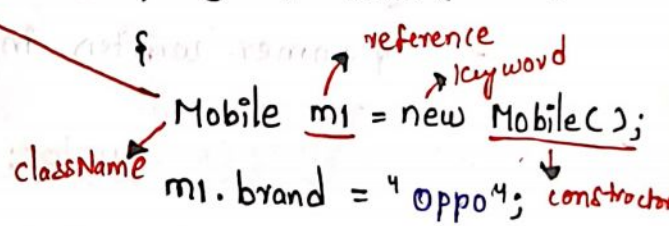 {
reference
keyword
Mobile m1 = new Mobile();
className
m1.brand = "oppo";
constructor